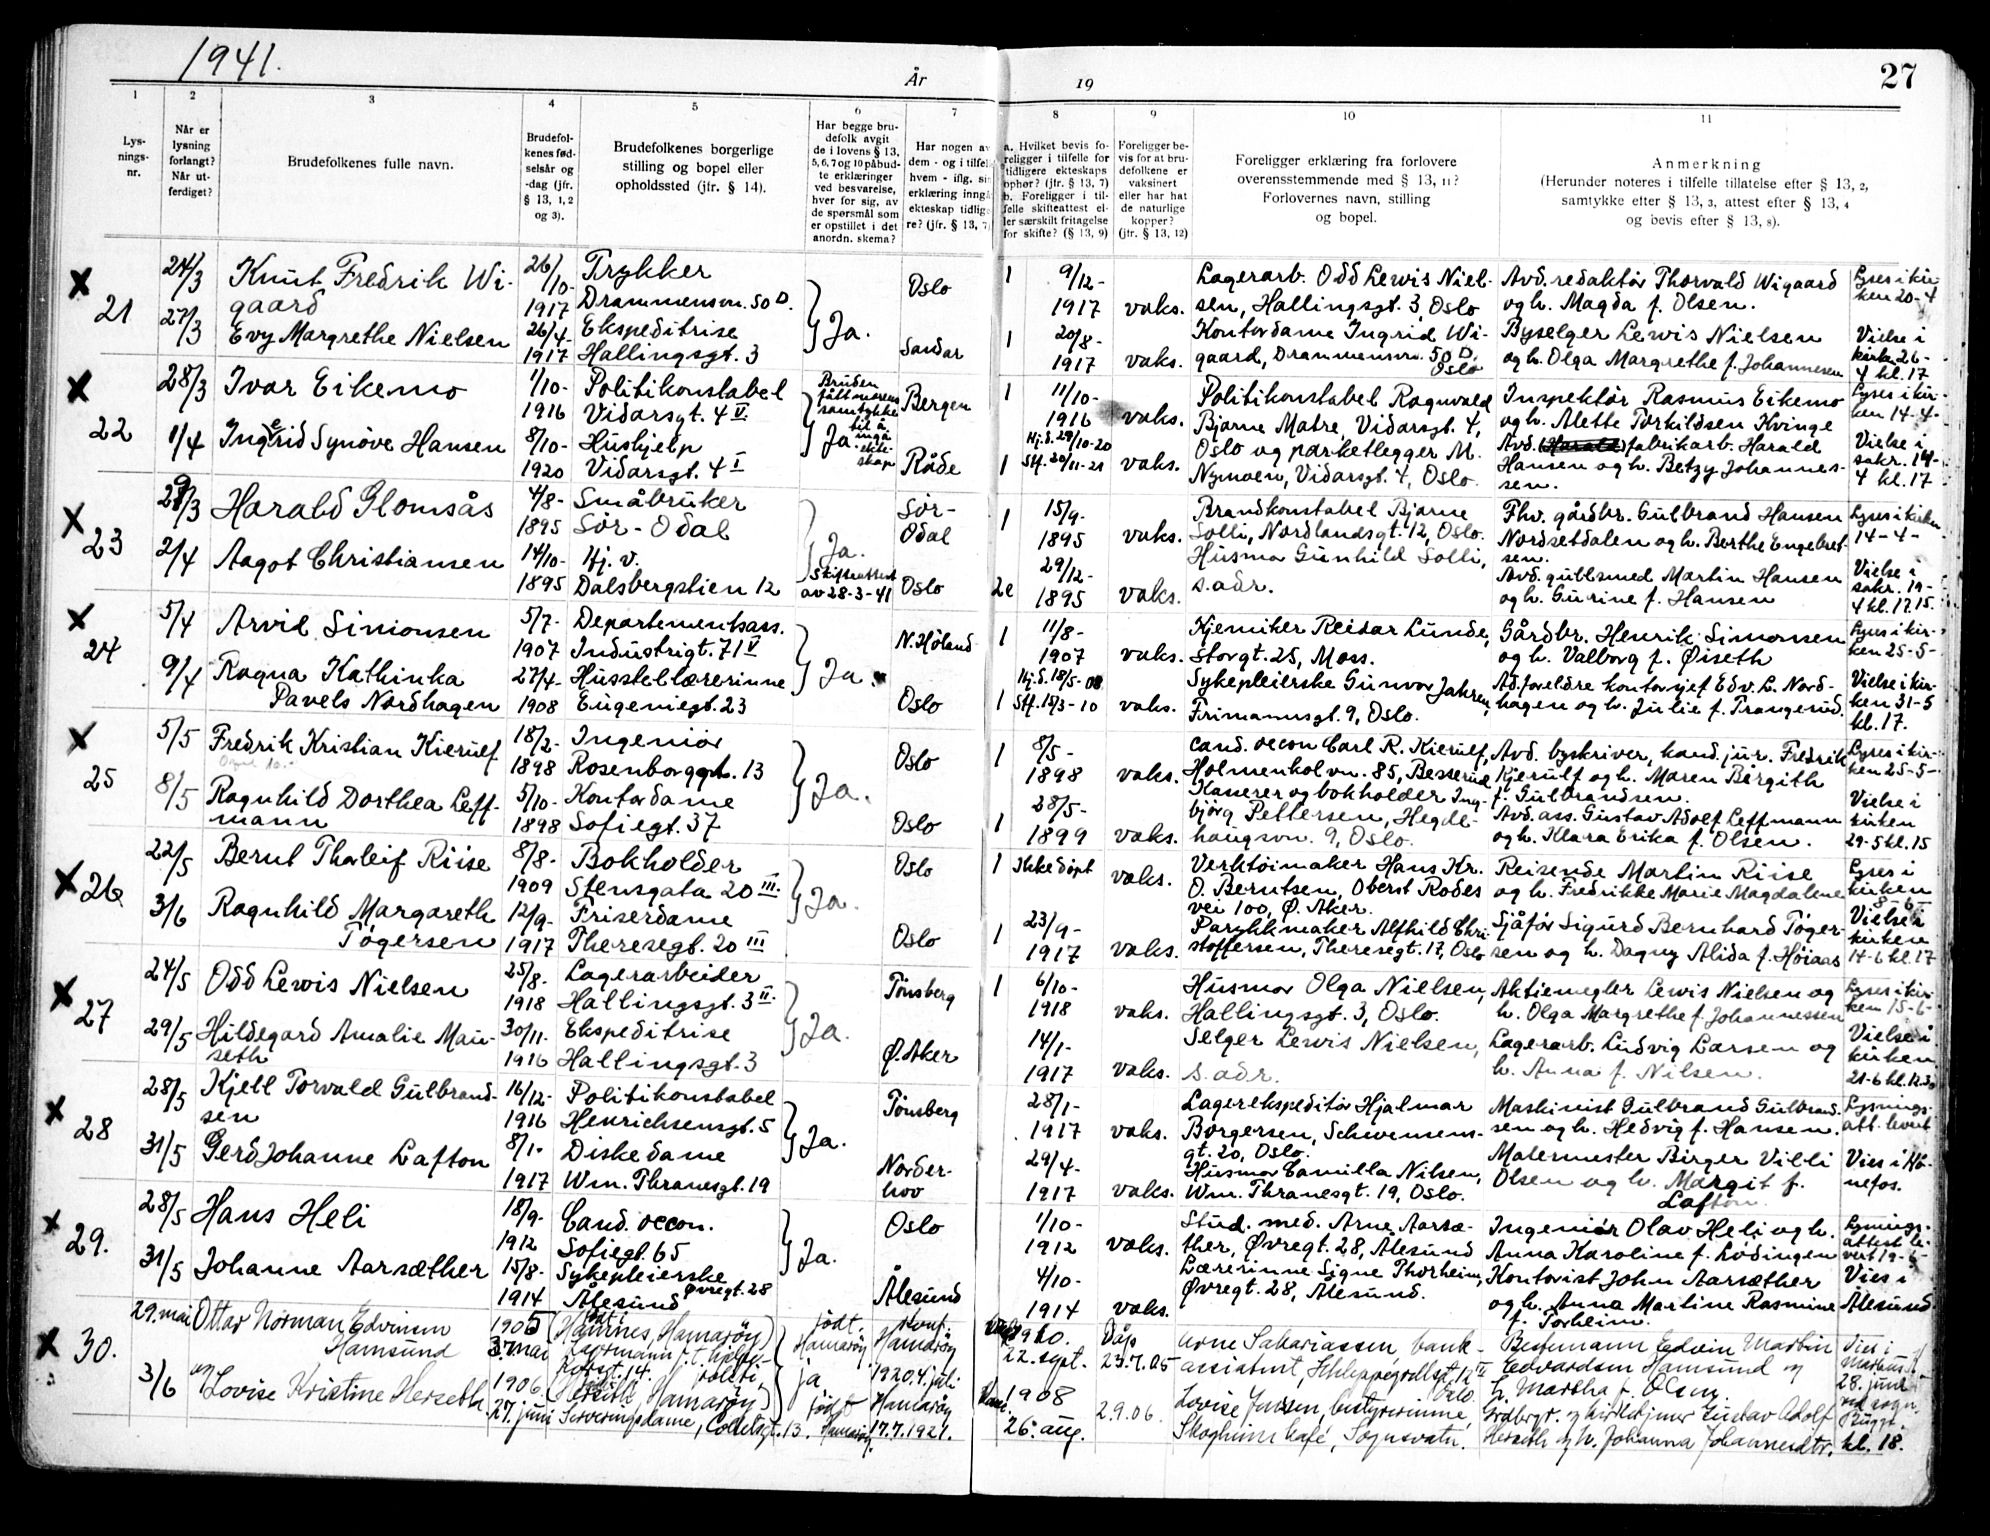 1941.
År
19
27
1
2
3
4
5
6
7
8
9
10
11
Lys-
nings-
nr.
Når er
lysning
forlangt?
Når ut-
ferdiget?
Brudefolkenes fulle navn.
Brudefol-
kenes fød-
selsår og
-dag (jfr.
§ 13, 1, 2
og 3).
Brudefolkenes borgerlige
stilling og bopel eller
opholdssted (jfr. § 14).
Har begge bru-
defolk avgit
de i lovens § 13,
5, 6, 7 og 10 påbud-
te erklæringer
ved besvarelse,
hver for sig, av
de spørsmål som
er opstillet i det
anordn. skema?
Har nogen av
dem - og i tilfel
hvem - iflg. si
erklæring inngå
ekteskap tidlig
re? (jfr. § 13, 7
a. Hvilket bevis fo-
religger i tilfelle for
tidligere ekteskaps
ophør? (jfr. § 13, 7)
b. Foreligger i til-
felle skifteattest el-
ler særskilt fritagelse
for skifte? (§ 13, 9)
Foreligger be-
vis for at bru-
defolkene er
vaksinert
eller har hat
de naturlige
kopper?
(jfr. § 13, 12)
Foreligger erklæring fra forlovere
overensstemmende med § 13, 11?
Forlovernes navn, stilling
og bopel.
Anmerkning
(Herunder noteres i tilfelle tillatelse efter § 13, 2,
samtykke efter § 13, 3, attest efter § 13, 4
og bevis efter § 13, 8).
x 21
24/3
27/3
Knut Fredrik Wi-
gaard
Evy Margrethe Nielsen
26/10-
1917
26/4-
1917
Trykker
Drammensvn. 50 D.
Ekspeditrise
Hallingsgt. 3
Ja.
Oslo
Sandar
1 9/12-
1917
1 20/8-
1917
vaks.
vaks.
Lagerarb. Odd Lewis Niel-
sen, Hallingsgt. 3, Oslo
Kontordame Ingrid Wi-
gaard, Drammensvn. 50 D.
Oslo
Avd. redaktør Thorvald Wigaard
og h. Magda f. Olsen.
Byselger Lewis Nielsen
og h. Olga Margrethe f. Johannesen
Lyses i kir-
ken 20-4
Vielse i
kirken 26-
4 kl. 17
x 22
28/3
1/4
Ivar Eikemo
Ingrid Synøve Hansen
1/10-
1916
8/10-
1920
Politikonstabel
Vidarsgt. 4 V
Hushjelp
Vidarsgt. 4 I
Bruden
fått morens
samtykke
til å
inngå
ekte-
skap
Ja.
Bergen
Råde
1 11/10-
1916
Hj.d. 29/10-20
1 Stf. 20/11-21
vaks.
vaks.
Politikonstabel Ragnvald
Bjarne Matre, Vidarsgt. 4,
Oslo og parketlegger M.
Nymoen, Vidarsgt. 4, Oslo.
Inspektør Rasmus Eikemo
og h. Alette Torkildsen Kvinge
Avd. fabrikarb. Harald
Hansen og h. Betzy Johannes-
sen.
Lyses i kir-
ken 14-4-
Vielse i
sakr. 19-
4 kl. 17
x 23
29/3
2/4
Harald Glomsås
Aagot Christiansen
4/8-
1895
14/10-
1895
Småbruker
Sør-Odal
Hj. v.
Dalsbergstien 12
Ja.
Skifteattest
av 28-3-41
Sør-
Odal
Oslo
1 15/9-
1895
29/12-
2e 1895
vaks.
vaks.
Brandkonstabel Bjarne
Solli, Nordlandsgt. 12, Oslo.
Husmor Gunhild Solli,
s. adr.
Fhv. gårdbr. Gulbrand Hansen
Nordsetdalen og h. Berthe Engebret-
sen.
Avd. gullsmed Martin Hansen
og h. Gurine f. Hansen
Lyses i kirken
14-4-
Vielse i
sakr. 19-
4 kl. 17.15.
x 24
5/4
9/4
Arvid Simonsen
Ragna Kathinka
Pavels Nordhagen
5/7-
1907
27/4-
1908
Departementsass.
Industrigt. 71 V
Husstellærerinne
Eugeniegt. 23
Ja.
N. Høland
Oslo
1 11/8-
1907
Hj.d. 18/5-08
1 Stf. 13/3-10
vaks.
vaks.
Kjemiker Reidar Lunde,
Storgt. 25, Moss.
Sykepleierske Gunvor Jahren,
Frimannsgt. 9, Oslo.
Gårdbr. Henrik Simonsen
og h. Valborg f. Øiseth
Ad.foreldre kontorsjef Edv. L. Nord-
hagen og h. Julie f. Trangerud.
Lyses i kir-
ken 25-5-
Vielse i kir-
ken 31-5
kl. 17.
x 25
5/5
8/5
Fredrik Kristian Kierulf
Ragnhild Dorthea Leff-
mann
18/2-
1898
5/10-
1898
Ingeniør
Rosenborggt. 13
Kontordame
Sofiegt. 37
Ja.
Oslo
Oslo
1 8/5-
1898
28/5-
1 1899
vaks.
vaks.
Cand. oecon Carl R. Kierulf,
Holmenkol vn. 85, Besserud
Kasserer og bokholder Ing-
bjørg Pettersen, Hegde-
haugsvn. 9, Oslo.
Avd. byskriver, kand. jur. Fredrik
Kjerulf og h. Maren Bergith
f. Gulbrandsen.
Avd. ass. Gustav Adolf Leffmann
og h. Klara Erika f. Olsen.
Lyses i kir-
ken 25-5-
Vielse i
kirken
29-5 kl. 15
x 26
22/5
3/6
Bernt Thorleif Riise
Ragnhild Margareth
Tøgersen
8/8-
1909
12/9-
1917
Bokholder
Stensgata 20 III.
Friserdame
Theresegt. 20 III
Ja.
Oslo
Oslo
1 Ikke døpt
23/9-
1 1917
vaks.
vaks.
Verktøimaker Hans Kr.
O. Berntsen, Oberst Rodes
vei 100, Ø. Aker.
Parykkmaker Alfhild Chri-
stoffersen, Theresegt. 17, Oslo
Reisende Martin Riise
og h. Fredrikke Marie Magdalene
Sjåfør Sigurd Bernhard Tøger-
sen og h. Dagny Alida f. Høiaas
Lyses i
kirken
8-6-
Vielse i
kirken
14-6 kl. 17
x 27
24/5
29/5
Odd Lewis Nielsen
Hildegard Amalie Mau-
seth
25/8-
1918
30/11-
1916
Lagerarbeider
Hallingsgt. 3 II.
Ekspeditrise
Hallingsgt. 3
Ja.
Tønsberg
Ø. Aker
1 6/10-
1918
14/1-
1917
vaks.
vaks.
Husmor Olga Nielsen,
Hallingsgt. 3, Oslo.
Selger Lewis Nielsen,
s. adr.
Aktiemegler Lewis Nielsen og
h. Olga Margrethe f. Johannessen
Lagerarb. Ludvig Larsen og
h. Anna f. Nilsen.
Lyses i kir-
ken 15-6-
Vielse i
kirken
21-6 kl. 12.30
x 28
28/5
31/5
Kjell Torvald Gulbrand-
sen
Gerd Johanne Lafton
16/12-
1916
8/1-
1917
Politikonstabel
Henrichsensgt. 5
Diskedame
Wm. Thranesgt. 19
Ja.
Tønsberg
Norder-
hov
28/1-
1917
29/4-
1917
vaks.
vaks.
Lagerekspeditør Hjalmar
Borgersen, Schwensens-
gt. 20, Oslo.
Husmor Camilla Nilsen,
Wm. Thranesgt. 19, Oslo.
Maskinist Gulbrand Gulbrand-
sen og h. Hedvig f. Hansen.
Malermester Birger Villi
Olsen og h. Margit f.
Lafton.
Lysnings-
att. levert
Vies i Hø-
nefos.
x 29.
28/5
31/5
Hans Heli
Johanne Aarsæther
18/9-
1912
15/8-
1914
Cand. oecon.
Sofiegt. 65
Sykepleierske
Øvregt. 28
Ålesund
Ja.
Oslo
Ålesund
1/10-
1912
4/10-
1914
vaks.
vaks.
Stud. med. Arne Aarsæ-
ther, Øvregt. 28, Ålesund
Lærerinne Signe Thorheim,
Øvregt. 28, Ålesund.
Ingeniør Olav Heli og h.
Anna Karoline f. Lødingen
Kontorist John Aarsæther
og h. Anna Martine Rasmine
f. Torheim.
Lysnings-
attest le-
vert 19-6-
Vies i
Ålesund
x 30.
29. mai
3/6
Ottar Norman Edvinsen
Hamsund
og Lovise Kristine Herseth.
1905
3. mai
1906
27. juni
(Hamnes, Hamarøy)
(Herseth, Hamarøy)
Serveringsdame, Colletsgt. 13.
født.
Hamarøy
ja
født
Hamarøy.
Hamarøy
1920. 4. juli
Hamarøy
17.7.1921.
1920.
22. sept.
1908
26. aug.
Dåp
23.7.05
2.9.06.
Arne Sakariassen, bank-
assistent, Schleppegrellsgt. 12 II
Oslo.
Lovise Jensen, bestyrerinne,
Skogheim kafé, Sognsvatn.
Bestmann Edvin Martin
Edvardsen Hamsund og
h. Martha f. Olsen.
Gårdbr. og kirketjener Gustav Adolf
Herseth og h. Johanna Johannesdtr.
Vies i
Markus k.
28. juni
ved sogn.
Rugge
kl. 18.